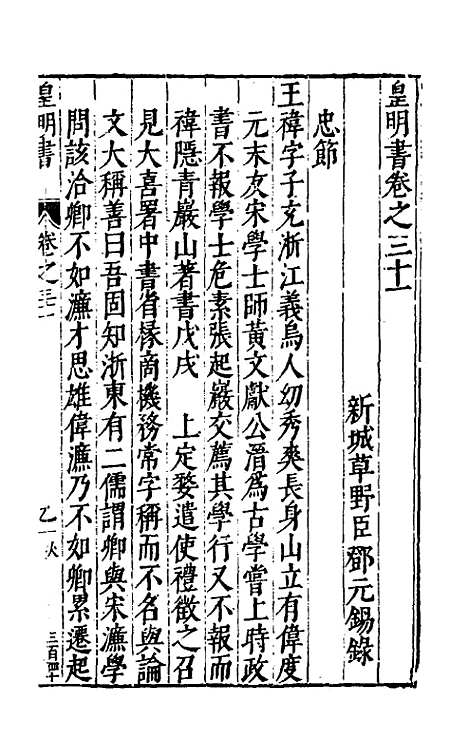 皇明書卷之三十一
新城草野臣鄧元錫錄
忠節
王禕字子充浙江義烏人幼秀爽長身山立有偉度
元末友宋學士師黃文獻公溍爲古學嘗上時政
書不報學士危素張起巖交薦其學行又不報而
禕隱青巖山著書戊戌 上定婺遣使禮徵之召
見大喜署中書省掾商機務常字稱而不名與論
文大稱善曰吾固知浙東有二儒謂卿與宋濂學
問該洽卿不如濂才思雄偉濂乃不如卿累遷起
皇明書
卷之三十一
三百四十